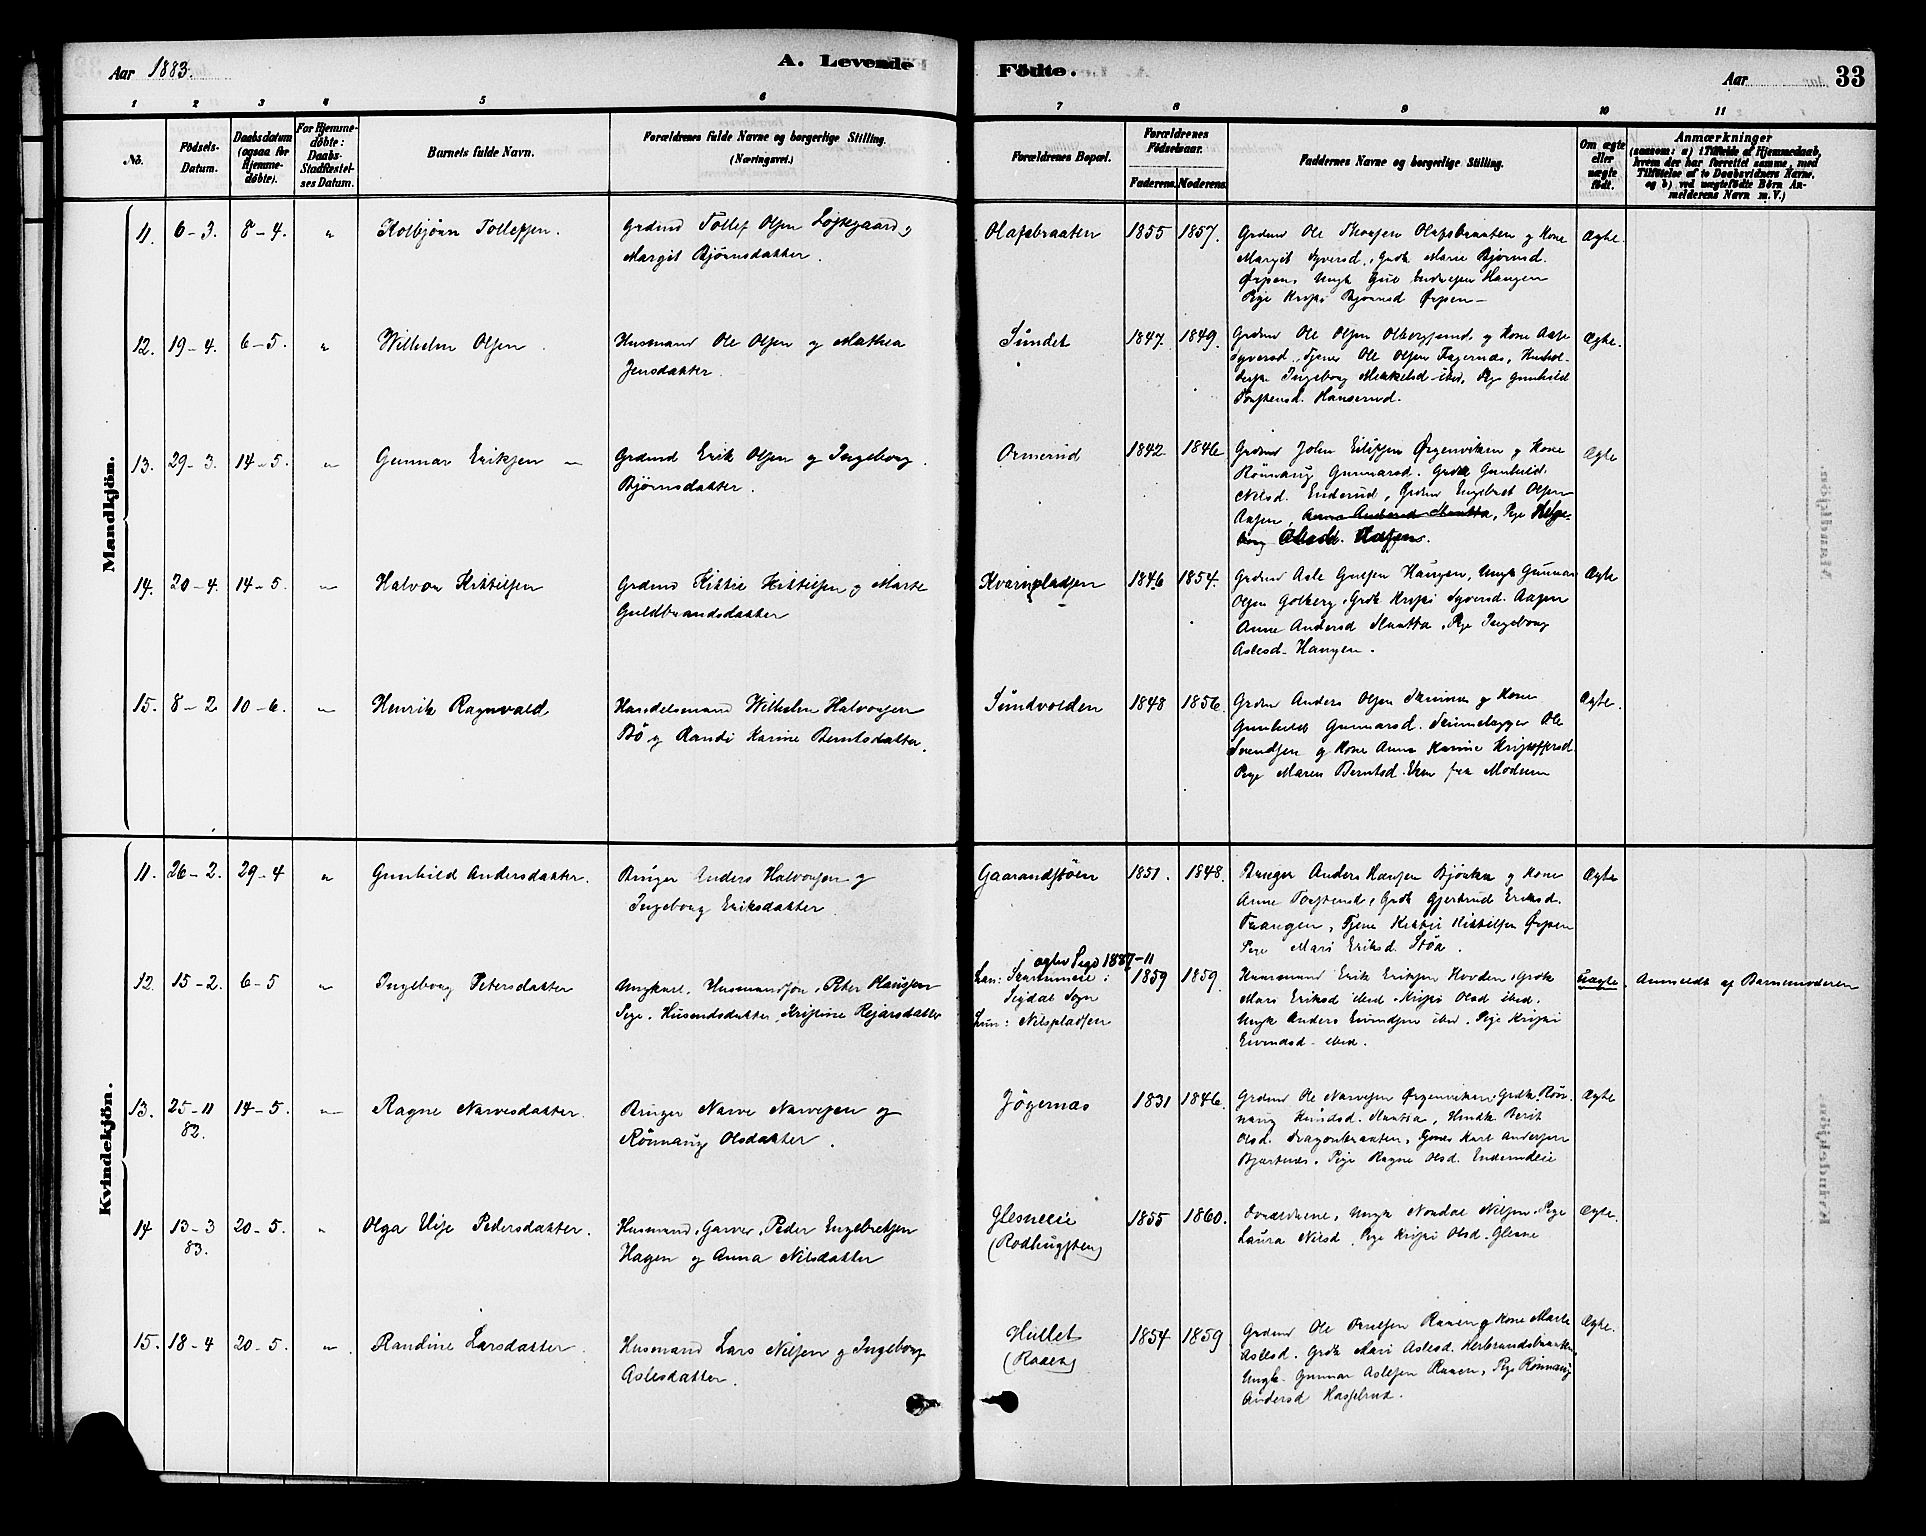 Aar 1883.
A. Levende
Födte.
Aar
33
1 2 3 4 5 6 7 8 9 10 11
No.
Födsels-Datum.
Daabsdatum (ogsaa for Hjemme-döbte).
For Hjemme-döbte: Daabs-Stadfæstel-ses Datum.
Barnets fulde Navn.
Forældrenes fulde Navne og borgerlige Stilling. (Næringsvei.)
Forældrenes Bopæl.
Forældrenes Födselsaar.
Faderens. Moderens.
Faddernes Navne og borgerlige Stilling.
Om ægte eller uægte födt.
Anmærkninger
(saasom: a) i Tilfælde af Hjemmedaab,
hvem der har forrettet samme, med
Tilföielse af to Daabsvidners Navne,
og b) ved uægtefödte Börn An-
melderens Navn m. V.)
Mandkjön.
11. 6-3. 8-4. " Kolbjørn Tollefsen.
Grdmd Tollef Olsen og
Margit Bjørnsdatter.
Olafsbraaten 1855 1857.
Grdmd Ole Olafsbraaten og Kone
Margit Syversd., Grdk Marie Bjørnsd.
Ørpen, Ungk Haugen
Pige Kristi Bjørnsd Ørpen
Ægte.
12. 19-4. 6-5. " Wilhelm Olsen.
Husmand Ole Olsen og Mathea
Jensdatter.
Sundet 1847. 1849.
Grdmd Ole Olsen og Kone
Syversd., Tjener Ole Olsen Fagernæs,
Ingeborg Mikkelsd ibid, Pige Gunhild
Torstensd. Hanserud.
Ægte.
13. 29-3. 14-5. " Gunnar Eriksen
Grdmd Erik Olsen og Ingeborg
Bjørnsdatter.
Ormerud 1842 1846
Grdmd John Ørgenviken og Kone
Rönnaug Gunnarsd. Grdk Gunhild
Nilsd. Enderud, Grdmd Engebret Olsen
Aasen, Anne Andersd Mantta, Pige
Ægte
14. 20-4. 14-5. " Halvor Kittilsen
Grdmd Kittil Kittilsen og Marte
Guldbrandsdatter
Kvarnpladsen 1846 1854.
Grdmd Asle Haugen, Ungk Gunnar
Olsen Golberg, Grdk Kristi Syversd. Aasen
Anne Andersd Mantta, Pige Ingeborg
Aslesd. Haugen.
Ægte
15. 8-2. 10-6. " Henrik Ragnvald
Handelsmand Wilhelm Halvorsen
Bö og Randi Karine Berntsdatter.
Sundvolden 1848 1856.
Grdmd Anders Olsen og Kone
Gunhild Gunnarsd. Ole
Svendsen og Kone Anne Karine Kristoffersd.
Pige Maren Berntsd. fra Modum
Ægte.
Kvindekjön.
11. 26-2. 29-4 " Gunhild Andersdatter.
Bruger Anders Halvorsen og
Ingeborg Eriksdatter.
Gaarandstöen 1851. 1848.
Bruger Anders Hansen og Kone
Anne Torstensd, Grdk Gjertrud Eriksd.
Tjener Kittil Kittilsen Ørpen
Pige Mari Eriksd. Støa.
Ægte
12. 15-2. 6-5 " Ingeborg Petersdatter
Ungkarl, Husmandssön, Peter Hansen
Pige, Husmdsdatter, Kristine Rejarsdatter
1887-11
Han:
Sigdal Sogn
Hun: Nilspladsen
1859 1859.
Husmand Erik Eriksen Hovden, Grdk
Mari Eriksd ibid. Kristi Olsd ibid.
Ungk Anders Eivindsen ibid. Pige Kristi
Eivindsd ibid.
uægte. Anmeldt af Barnemoderen
13. 25-11 82. 14-5. " Ragne Narvesdatter.
Bruger Narve Narvesen og
Rönnaug Olsdatter.
Jögernæs 1831 1846.
Grdmd Ole Narvesen Ørgenviken, Grdk Rön-
naug Knudsd. Mantta, Hmdk Berit
Olsd. Dragonbraaten, Tjener Karl Andersen
Bjertnæs, Pige Ragne Olsd. Enderudeie
Ægte
14 13-3 83. 20-5. " Olga Elise Pedersdatter.
Husmand, Garver, Peder Engebretsen
Hagen og Anna Nilsdatter
Glesneeie
(Rødhugsten)
1855 1860.
Forældrene, Ungk Nilsen, Pige
Laura Nilsd. Pige Kristi Olsd. Glesne
Ægte.
15. 18-4 20-5. " Randine Larsdatter.
Husmand Lars Nilsen og Ingeborg
Aslesdatter.
Hullet
(Raaen)
1854 1859
Grdmd Ole Raaen og Kone Marte
Aslesd. Grdk Mari Aslesd. Herbrandsbraaten,
Ungk. Gunnar Aslesen Raaen, Pige Rönnaug
Andersd Hasselrud.
Ægte.